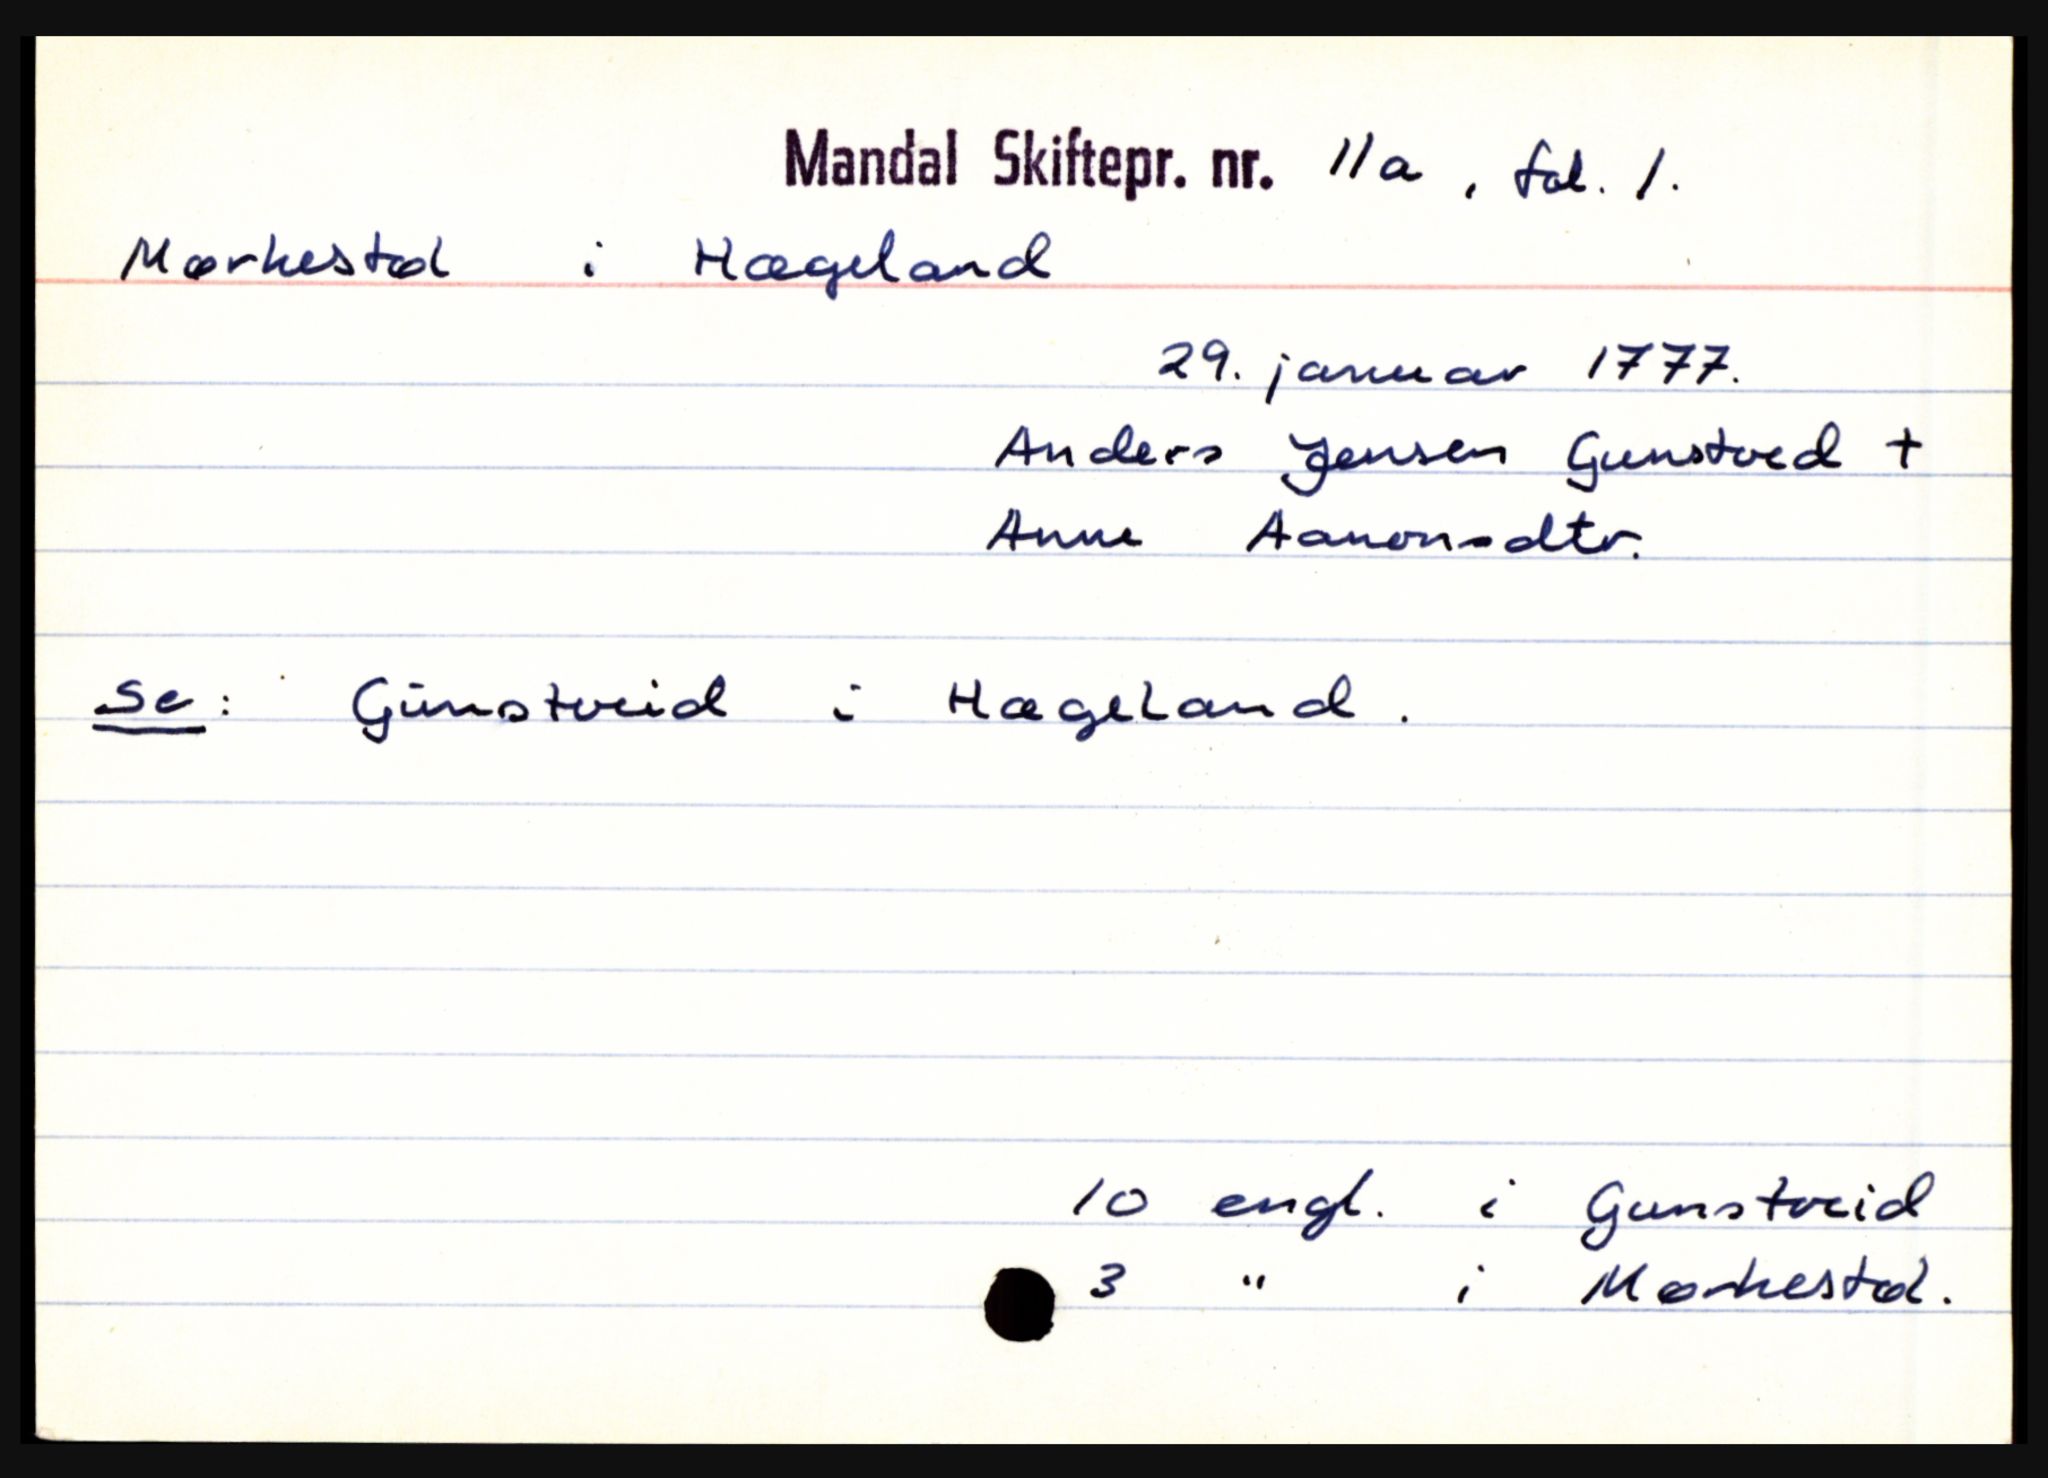 Mandal Skiftepr. nr. 11a, fol. 1.
Mørkestøl i Hægeland
29. januar 1777.
Anders Jensen Gunstved +
Anne Aanonsdtr.
Se: Gunstveid i Hægeland.
10 engl. i Gunstveid
3 " i Mørkestøl.